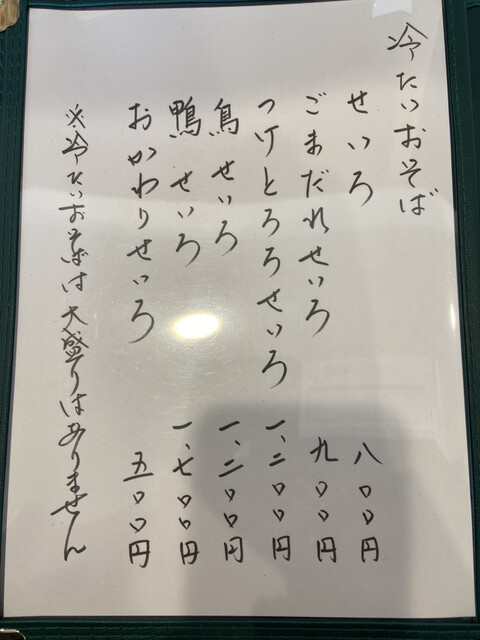 冷たいおそば
せいろ 八〇〇円
ごまだれせいろ 九〇〇円
つけとろろせいろ 一、二〇〇円
鳥せいろ 一、二〇〇円
鴨せいろ 一、七〇〇円
おかわりせいろ 五〇〇円
※冷たいおそばは大盛りはありません